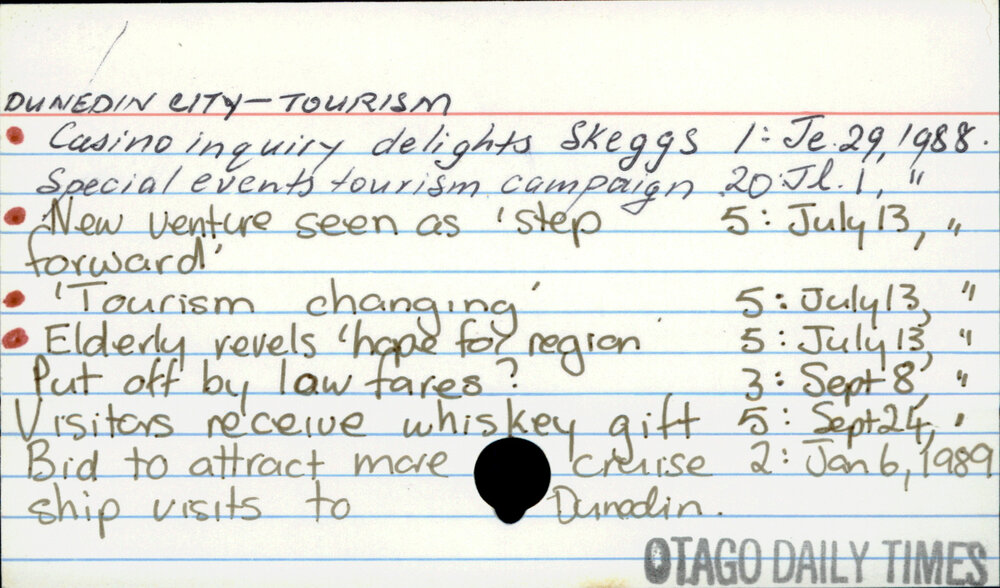 DUNEDIN CITY - TOURISM
• Casino inquiry delights Skeggs 1: Je. 29, 1988.
Special events tourism campaign 20: Jl. 1, "
• New venture seen as 'step 5: July 13, "
forward'
• 'Tourism changing' 5: July 13, "
• Elderly revels 'hope for region 5: July 13, "
Put off by law fares? 3: Sept 8, "
Visitors receive whiskey gift 5: Sept 24, "
Bid to attract more cruise 2: Jan 6, 1989
ship visits to Dunedin.
OTAGO DAILY TIMES